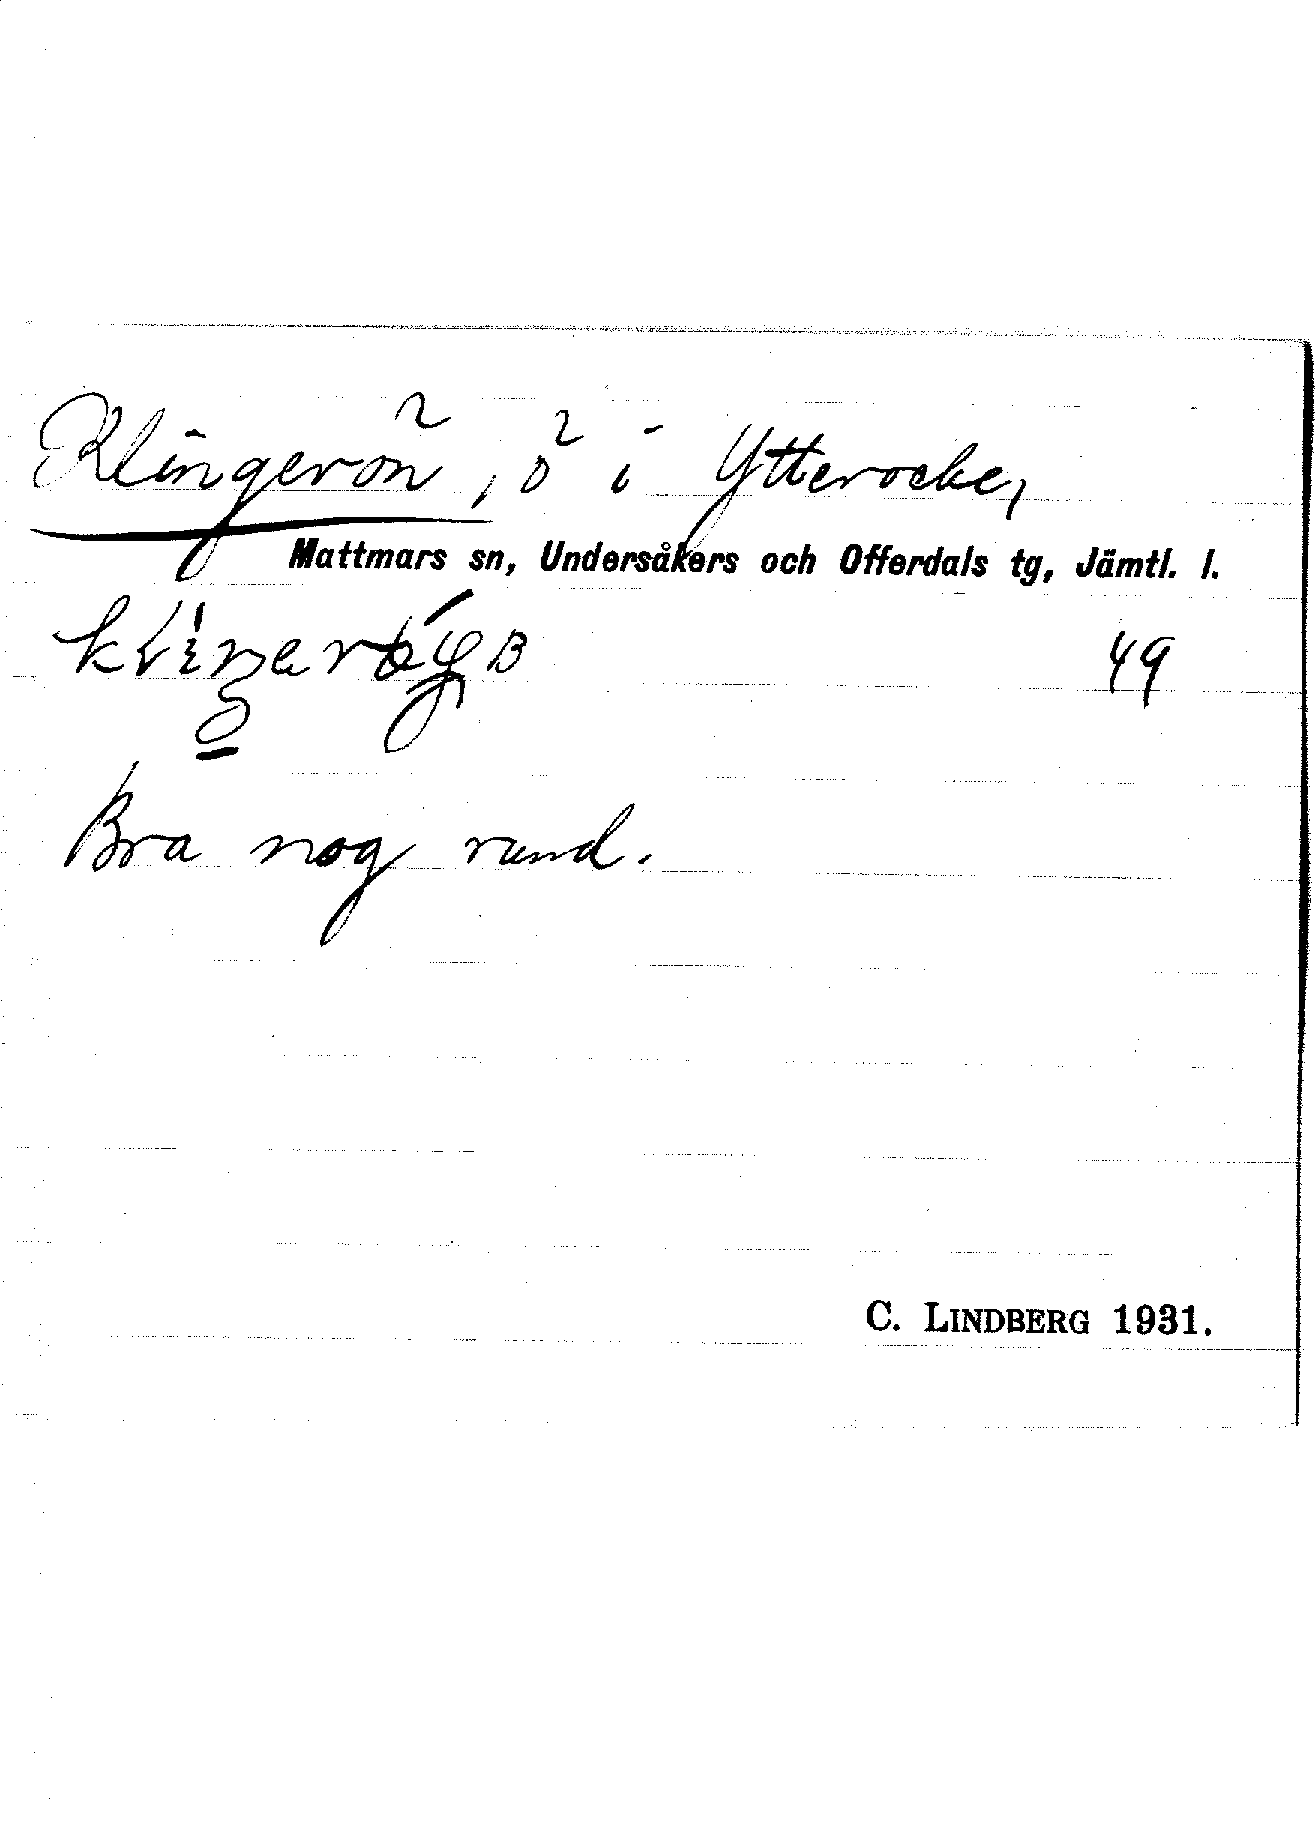 Klingerön, ö i Ytterocke,
Mattmars sn, Undersåkers och Offerdals tg, Jämtl. l.
49
Bra nog rund.
C. LINDBERG 1931.